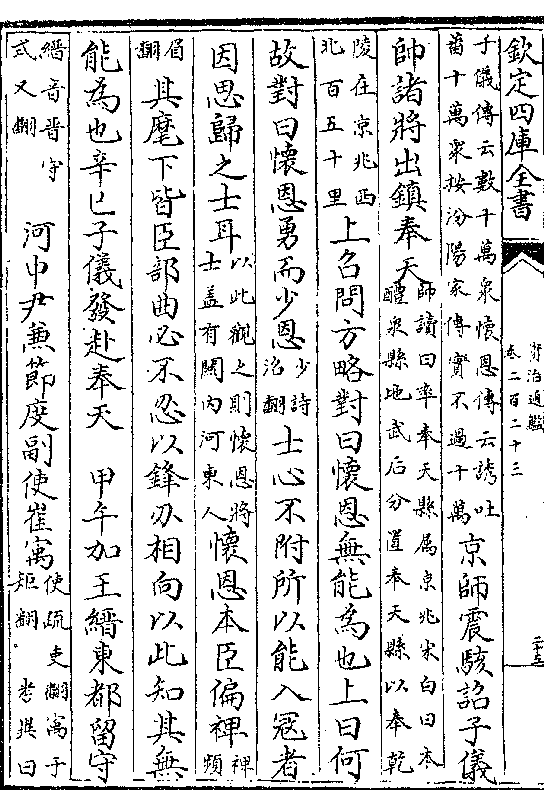 欽定四庫全書
資治通鑑
卷二百二十三
子儀傳云數十萬衆懷恩傳云誘吐
蕃十萬衆按汾陽家傳實不過十萬
京師震駭詔子儀
帥諸將出鎮奉天
師讀曰率奉天縣屬京兆宋白曰本
醴泉縣地武后分置奉天縣以奉乾
陵在京兆西
北百五十里
上召問方略對曰懷恩無能為也上曰何
故對曰懷恩勇而少恩
少詩
沼翻
士心不附所以能入冦者
因思歸之士耳
以此觀之則懷恩將
士盖有關內河東人
懷恩本臣偏裨
裨頻
眉
翻
其麾下皆臣部曲必不忍以鋒刃相向以此知其無
能為也辛巳子儀發赴奉天　甲午加王縉東都留守
縉音晋守
式又翻
河中尹兼節度副使崔寓
使疏吏翻寓于
矩翻　考異曰